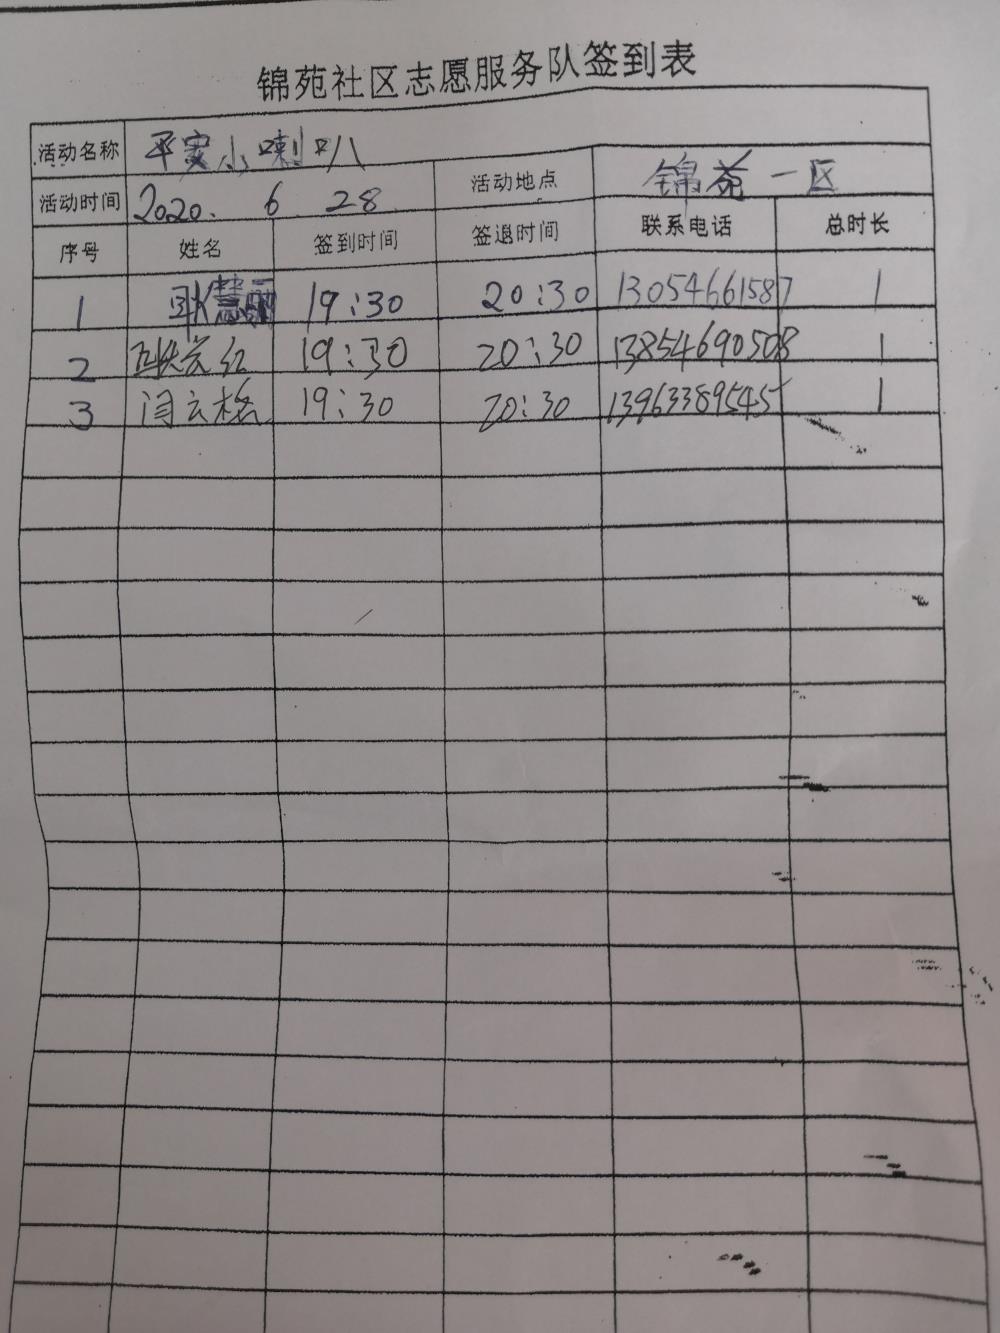 锦苑社区志愿服务队签到表
活动名称 平安小喇叭
活动时间 2020. 6 28 活动地点 锦苑一区
序号 姓名 签到时间 签退时间 联系电话 总时长
1 耿慧丽 19:30 20:30 13054661587 1
2 19:30 20:30 13854690508 1
3 闫云格 19:30 20:30 13963389545 1